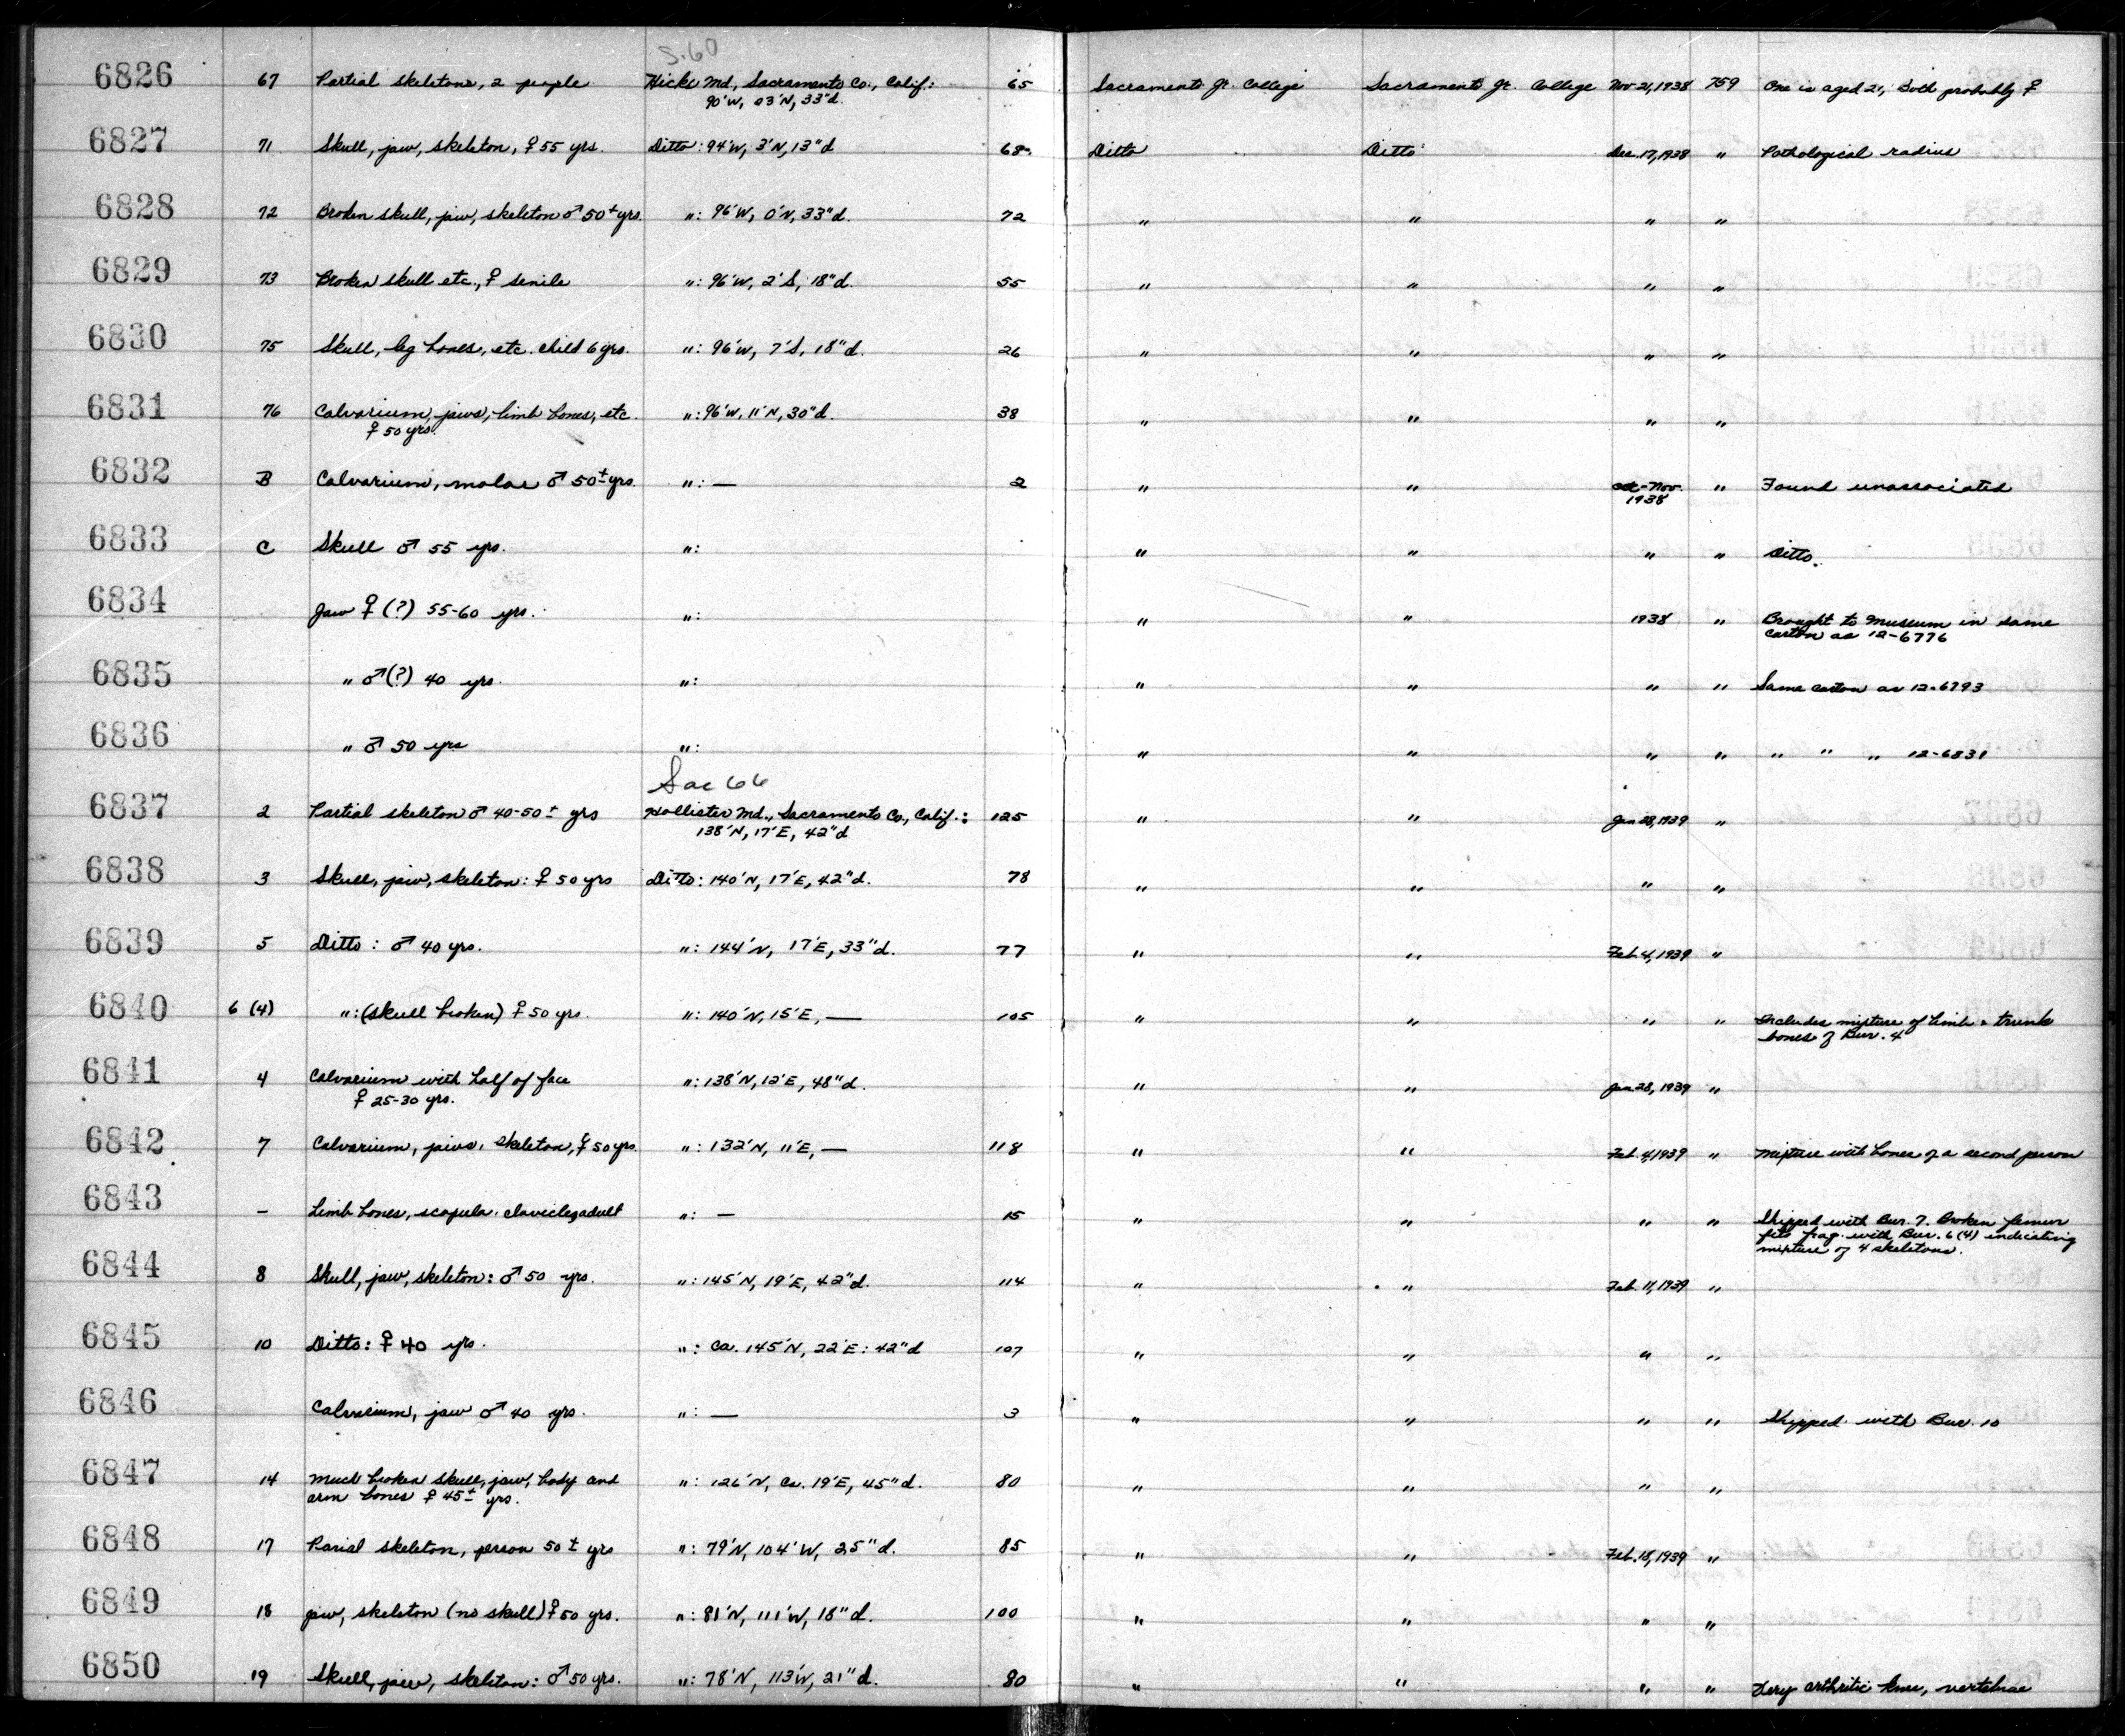 S.60
6826 67 Partial skeletons, 2 people Hicks Md, Sacramento Co., Calif.: 65 Sacramento Jr. College Sacramento Jr. College Nov 21, 1938 759 One is aged 21, Both probably ♀
90'W, 03'N, 33"d.
6827 71 Skull, jaw, skeleton, ♀ 55 yrs. Ditto: 94'W, 3'N, 13"d 68 Ditto Ditto Dec. 17, 1938 " Pathological radius
6828 72 Broken skull, jaw, skeleton ♂ 50± yrs. ": 96'W, 0'N, 33"d. 72 " " " "
6829 73 Broken skull etc., ♀ senile ": 96'W, 2'S, 18"d. 55 " " " "
6830 75 Skull, leg bones, etc. child 6 yrs. ": 96'W, 7'S, 18"d. 26 " " " "
6831 76 Calvarium, jaws, limb bones, etc. ": 96'W, 11'N, 30"d. 38 " " " "
♀ 50 yrs.
6832 B Calvarium, molar ♂ 50± yrs. ": — 2 " " Oct-Nov. " Found unassociated
1938
6833 C Skull ♂ 55 yrs. ": " " " " Ditto.
6834 Jaw ♀ (?) 55-60 yrs. ": " " 1938 " Brought to Museum in same
carton as 12-6776
6835 " ♂ (?) 40 yrs. ": " " " " Same carton as 12-6793
6836 " ♂ 50 yrs ": " " " " " " " 12-6831
Sac 66
6837 2 Partial skeleton ♂ 40-50± yrs Hollister Md., Sacramento Co., Calif.: 125 " " Jan 28, 1939 "
138'N, 17'E, 42"d
6838 3 Skull, jaw, skeleton: ♀ 50 yrs Ditto: 140'N, 17'E, 42"d. 78 " " " "
6839 5 Ditto: ♂ 40 yrs. ": 144'N, 17'E, 33"d. 77 " " Feb. 4, 1939 "
6840 6 (4) ": (skull broken) ♀ 50 yrs. ": 140'N, 15'E, — 105 " " " " Includes mixture of limb & trunk
bones of Bur. 4
6841 4 Calvarium with half of face ": 138'N, 12'E, 48"d. " " Jan 28, 1939 "
♀ 25-30 yrs.
6842 7 Calvarium, jaws, skeleton, ♀ 50 yrs. ": 132'N, 11'E, — 118 " " Feb. 4, 1939 " Mixture with bones of a second person
6843 - Limb bones, scapula, clavicles, adult ": — 15 " " " " Shipped with Bur. 7. Broken femur
fits frag. with Bur. 6 (4) indicating
mixture of 4 skeletons.
6844 8 Skull, jaw, skeleton: ♂ 50 yrs. ": 145'N, 19'E, 42"d. 114 " " Feb. 11, 1939 "
6845 10 Ditto: ♀ 40 yrs. ": Ca. 145'N, 22'E: 42"d 107 " " " "
6846 Calvarium, jaw ♂ 40 yrs. ": — 3 " " " " Shipped with Bur. 10
6847 14 Much broken skull, jaw, body and ": 126'N, Ca. 19'E, 45"d. 80 " " " "
arm bones ♀ 45± yrs.
6848 17 Parial skeleton, person 50± yrs ": 79'N, 104'W, 25"d. 85 " " Feb. 18, 1939 "
6849 18 jaw, skeleton (no skull) ♀ 50 yrs. ": 81'N, 111'W, 18"d. 100 " " " "
6850 19 Skull, jaw, skeleton: ♂ 50 yrs. ": 78'N, 113'W, 21"d. 80 " " " " Very arthritic knee, vertebrae